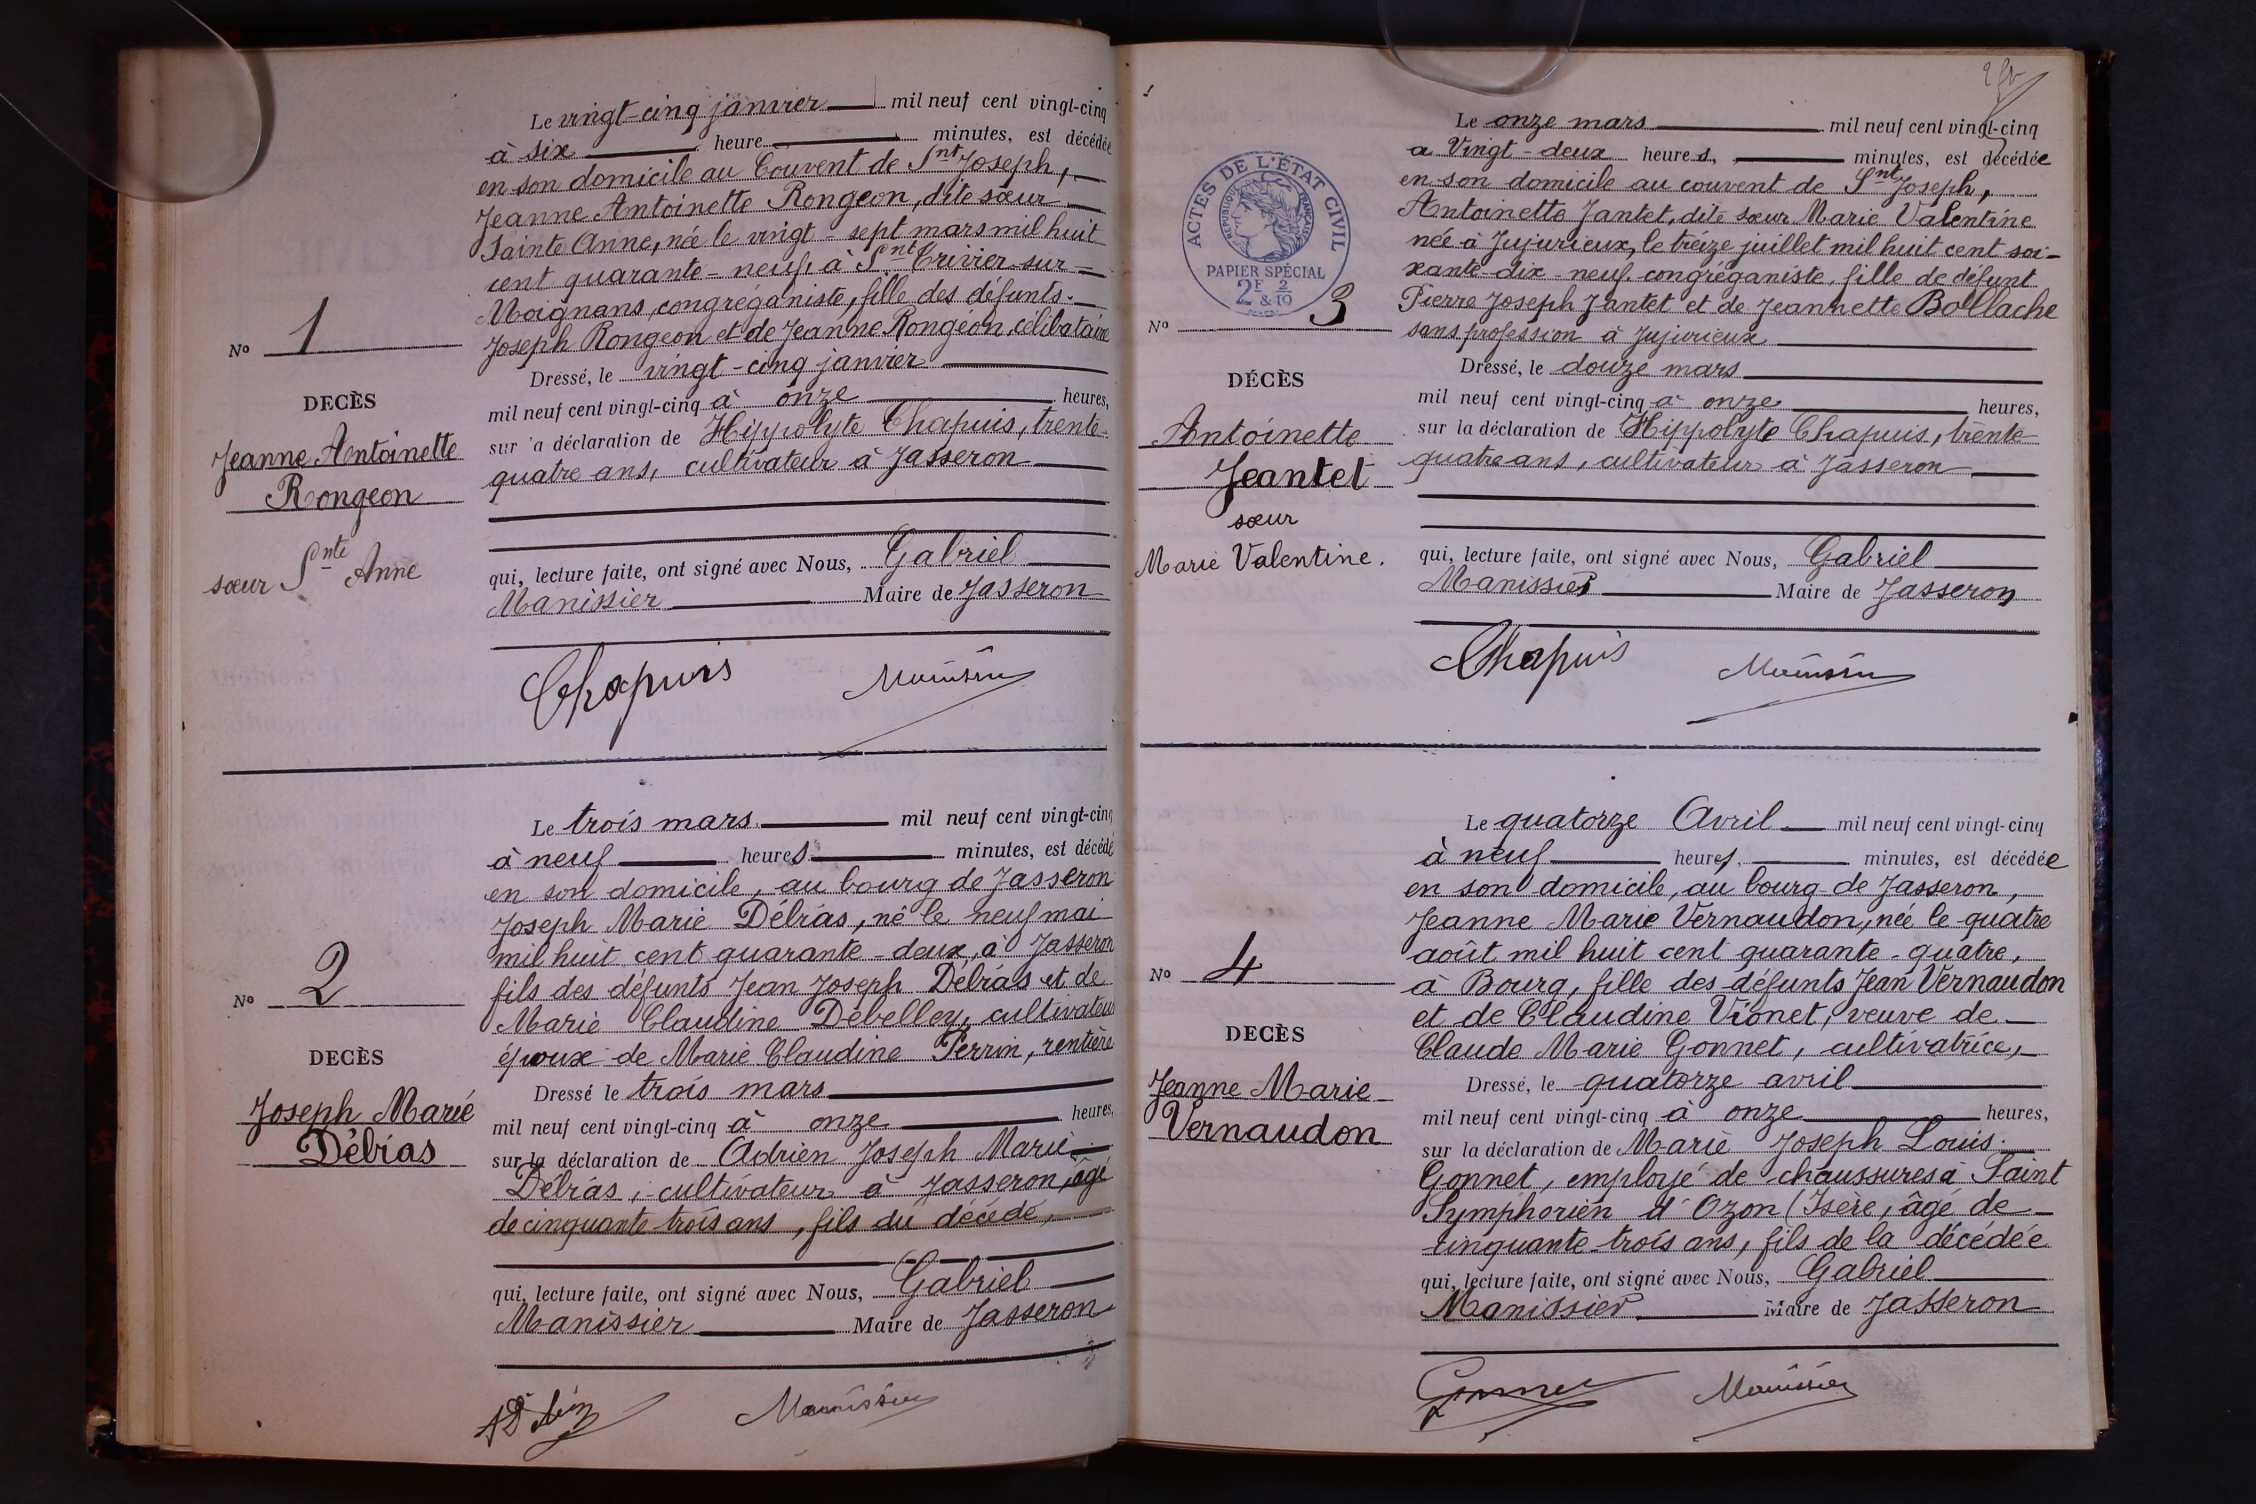 Le vingt-cinq janvier mil neuf cent vingt-cinq
à six heure minutes, est décédée
en son domicile au Couvent de Snt Joseph,
Jeanne Antoinette Rongeon, dite sœur
Sainte Anne, née le vingt-sept mars mil huit
cent quarante-neuf, à Snt Trivier-sur-
Moignans, congréganiste, fille des défunts
Joseph Rongeon et de Jeanne Rongeon, célibataire
Dressé, le vingt-cinq janvier
mil neuf cent vingt-cinq à onze heures,
sur la déclaration de Hippolyte Chapuis, trente-
quatre ans, cultivateur à Jasseron
qui, lecture faite, ont signé avec Nous, Gabriel
Manissier Maire de Jasseron
Chapuis Manissier
No 1
DECÈS
Jeanne Antoinette
Rongeon
sœur Snte Anne
Le trois mars mil neuf cent vingt-cinq
à neuf heures minutes, est décédé
en son domicile, au bourg de Jasseron
Joseph Marie Débias, né le neuf mai
mil huit cent quarante-deux, à Jasseron
fils des défunts Jean Joseph Débias et de
Marie Claudine Debelley, cultivateur
époux de Marie Claudine Perrin, rentière
Dressé le trois mars
mil neuf cent vingt-cinq à onze heures,
sur la déclaration de Adrien Joseph Marie
Débias, cultivateur à Jasseron, âgé
de cinquante trois ans, fils du décédé,
qui, lecture faite, ont signé avec Nous, Gabriel
Manissier Maire de Jasseron
Manissier
No 2
DECÈS
Joseph Marie
Débias
ACTES DE L'ÉTAT CIVIL
REPUBLIQUE FRANÇAISE
PAPIER SPÉCIAL
2F 2/10
&
No 3
DÉCÈS
Antoinette
Jeantet
sœur
Marie Valentine.
Le onze mars mil neuf cent vingt-cinq
a Vingt-deux heures, minutes, est décédée
en son domicile au couvent de Snt Joseph,
Antoinette Jantet, dite sœur Marie Valentine
née à Jujurieux, le treize juillet mil huit cent soi-
xante-dix-neuf. congréganiste, fille de défunt
Pierre Joseph Jantet et de Jeannette Bollache
sans profession à Jujurieux
Dressé, le douze mars
mil neuf cent vingt-cinq a onze heures,
sur la déclaration de Hippolyte Chapuis, trente
quatre ans, cultivateur à Jasseron
qui, lecture faite, ont signé avec Nous, Gabriel
Manissier Maire de Jasseron
Chapuis Manissier
Le quatorze Avril mil neuf cent vingt-cinq
à neuf heures, minutes, est décédée
en son domicile, au bourg de Jasseron,
Jeanne Marie Vernaudon, née le quatre
août mil huit cent quarante-quatre,
à Bourg, fille des défunts Jean Vernaudon
et de Claudine Vionet, veuve de
Claude Marie Gonnet, cultivatrice,
Dressé, le quatorze avril
mil neuf cent vingt-cinq à onze heures,
sur la déclaration de Marie Joseph Louis
Gonnet, employé de chaussures à Saint
Symphorien d'Ozon (Isère, âgé de
cinquante-trois ans, fils de la décédée
qui, lecture faite, ont signé avec Nous, Gabriel
Manissier Maire de Jasseron
Gonnet Manissier
No 4
DECÈS
Jeanne Marie
Vernaudon